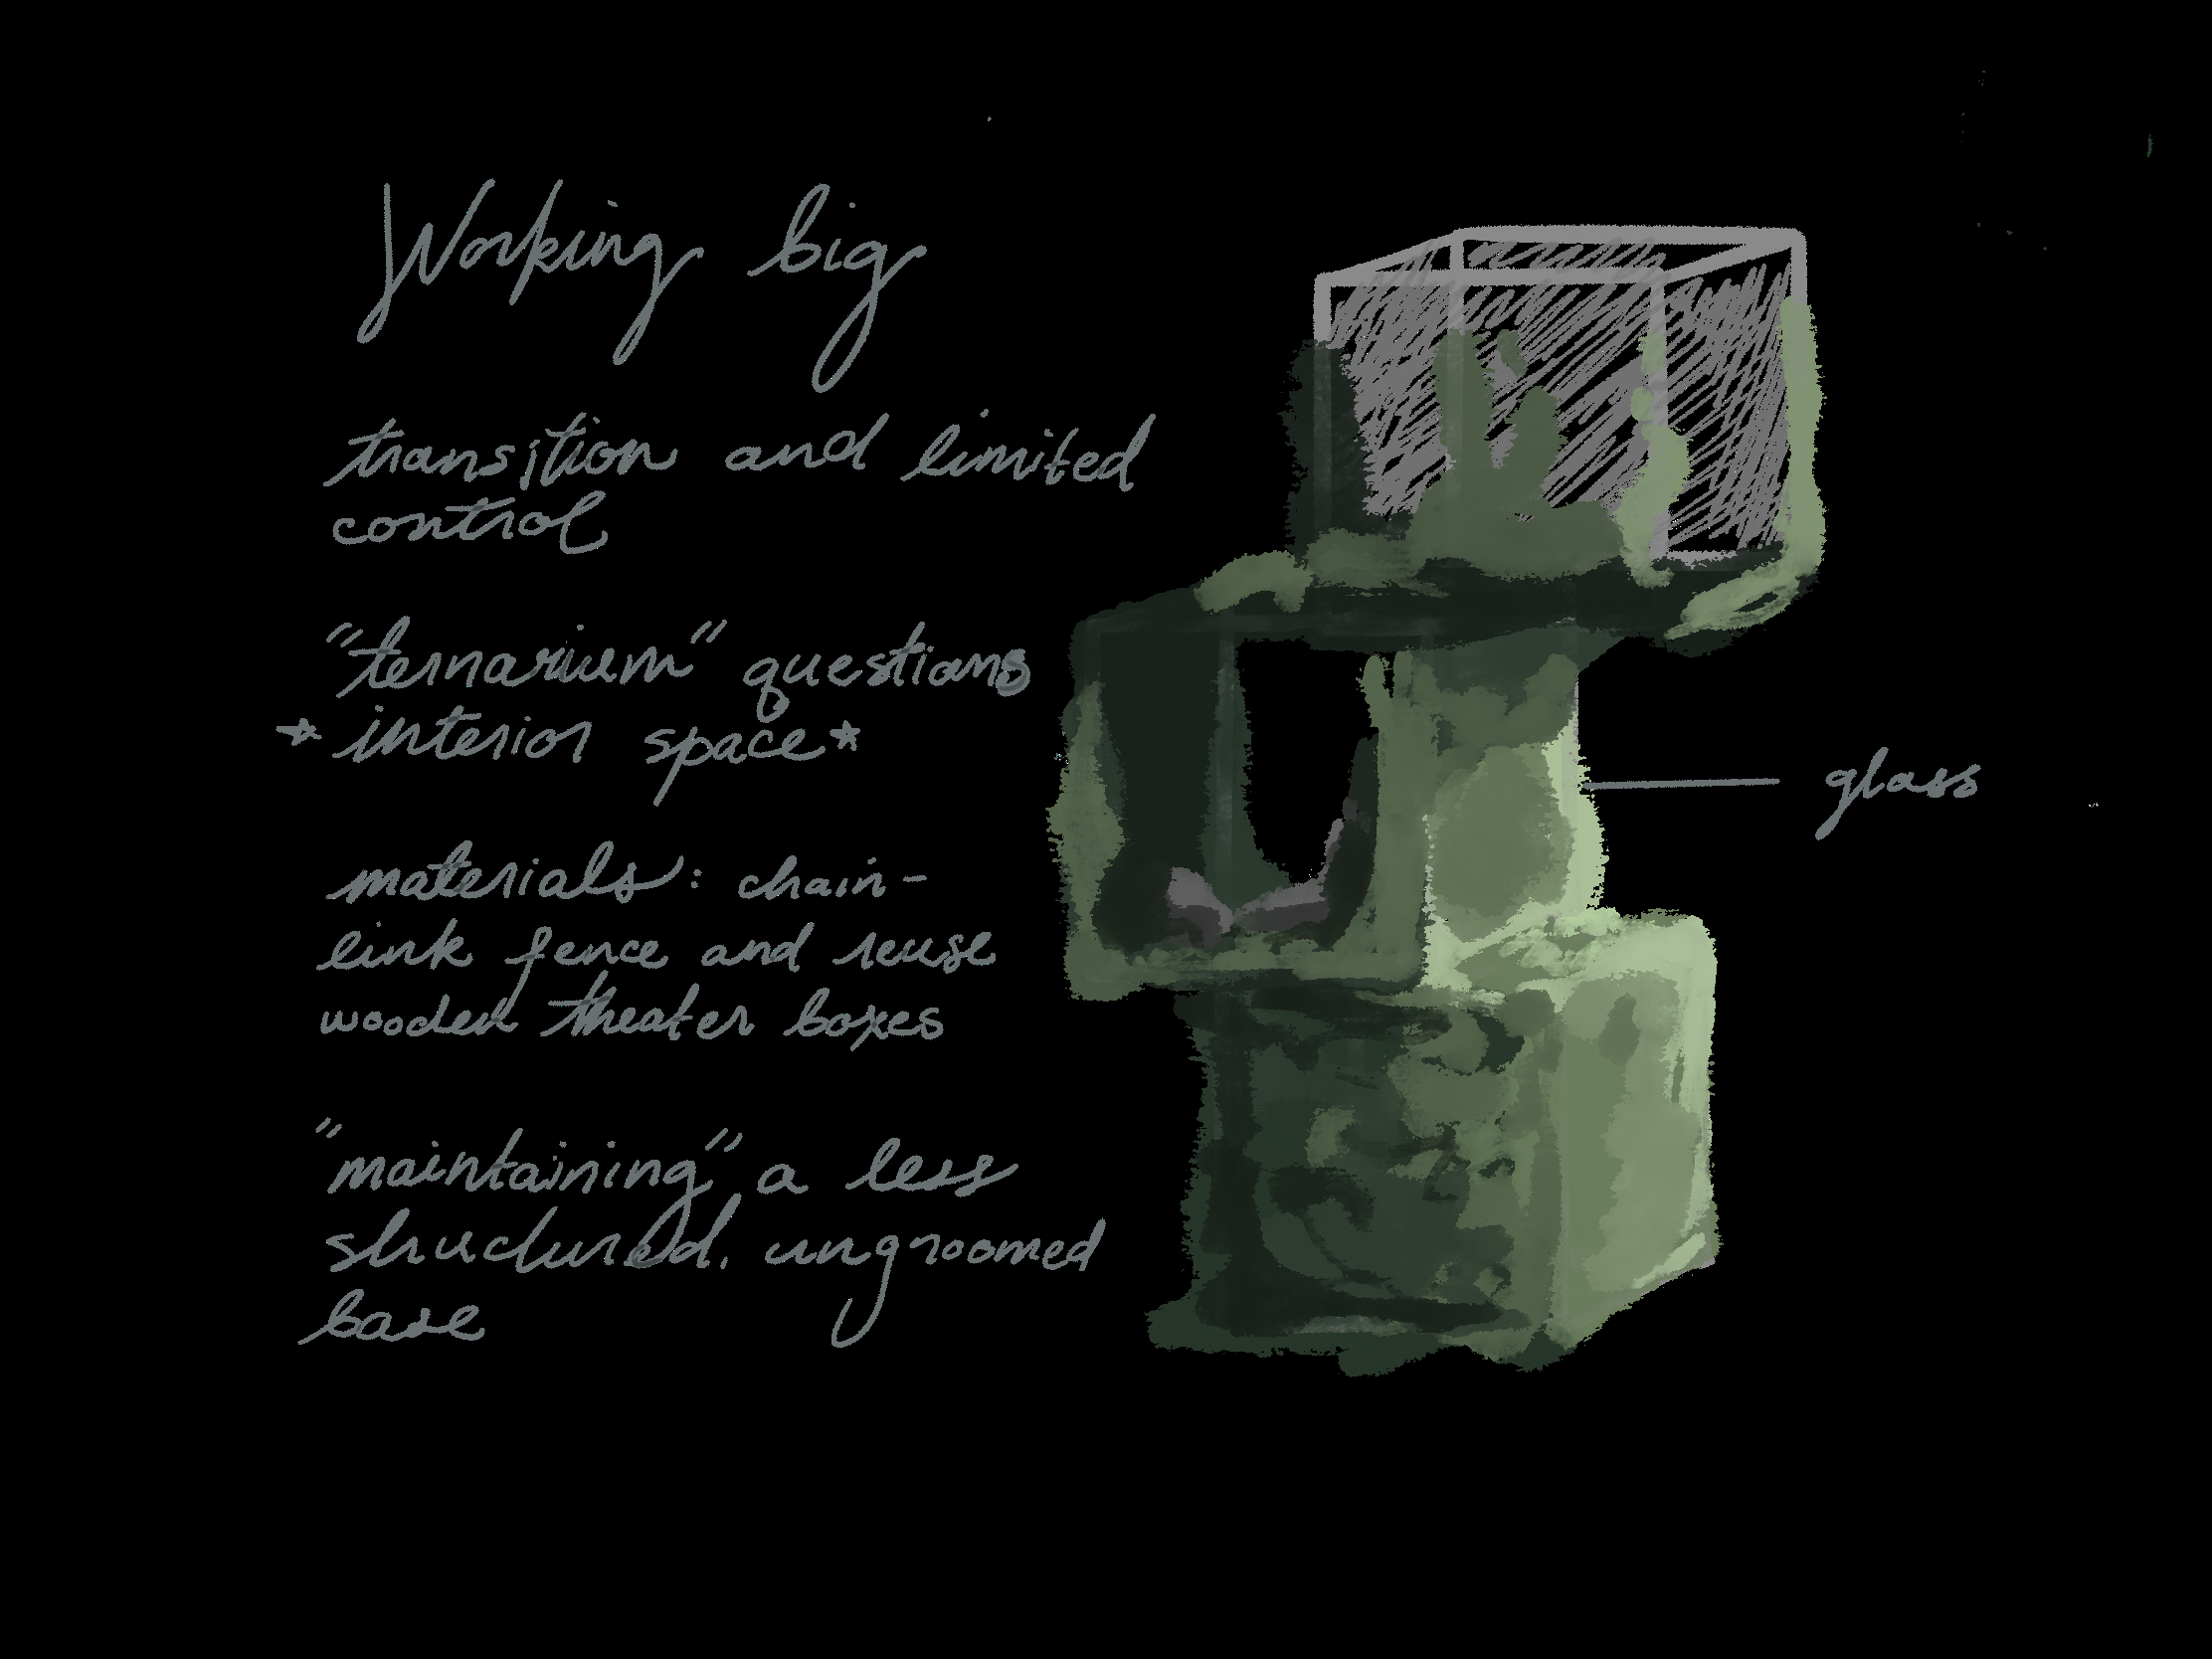 Working big
transition and limited
control
"ternarium" questions
* interior space *
materials: chain-
link fence and reuse
wooden theater boxes
"maintaining" a less
structured, ungroomed
base
glass